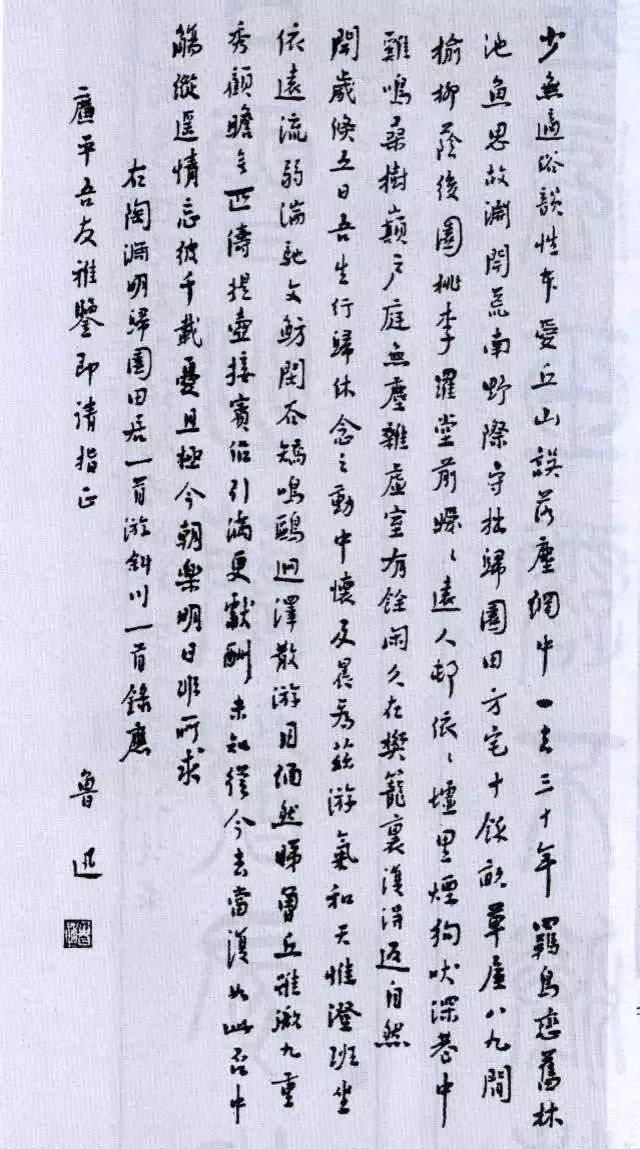 少無適俗韻性本愛丘山誤落塵網中一去三十年羈鳥戀舊林
池魚思故淵開荒南野際守拙歸園田方宅十餘畝草屋八九間
榆柳蔭後園桃李羅堂前曖々遠人邨依々墟里煙狗吠深巷中
雞鳴桑樹巔戶庭無塵雜虛室有餘閑久在樊籠裏復得返自然
開歲倏五日吾生行歸休念之動中懷及晨為茲游氣和天惟澄班坐
依遠流弱湍馳文魴閑谷矯鳴鷗迥澤散游目緬然睇曾丘雖微九重
秀顧瞻無匹儔提壺接賓侶引滿更獻酬未知從今去當復如此否中
觴縱遙情忘彼千載憂且極今朝樂明日非所求
右陶淵明歸園田居一首游斜川一首錄應
廉平吾友雅鑒即請指正
魯迅